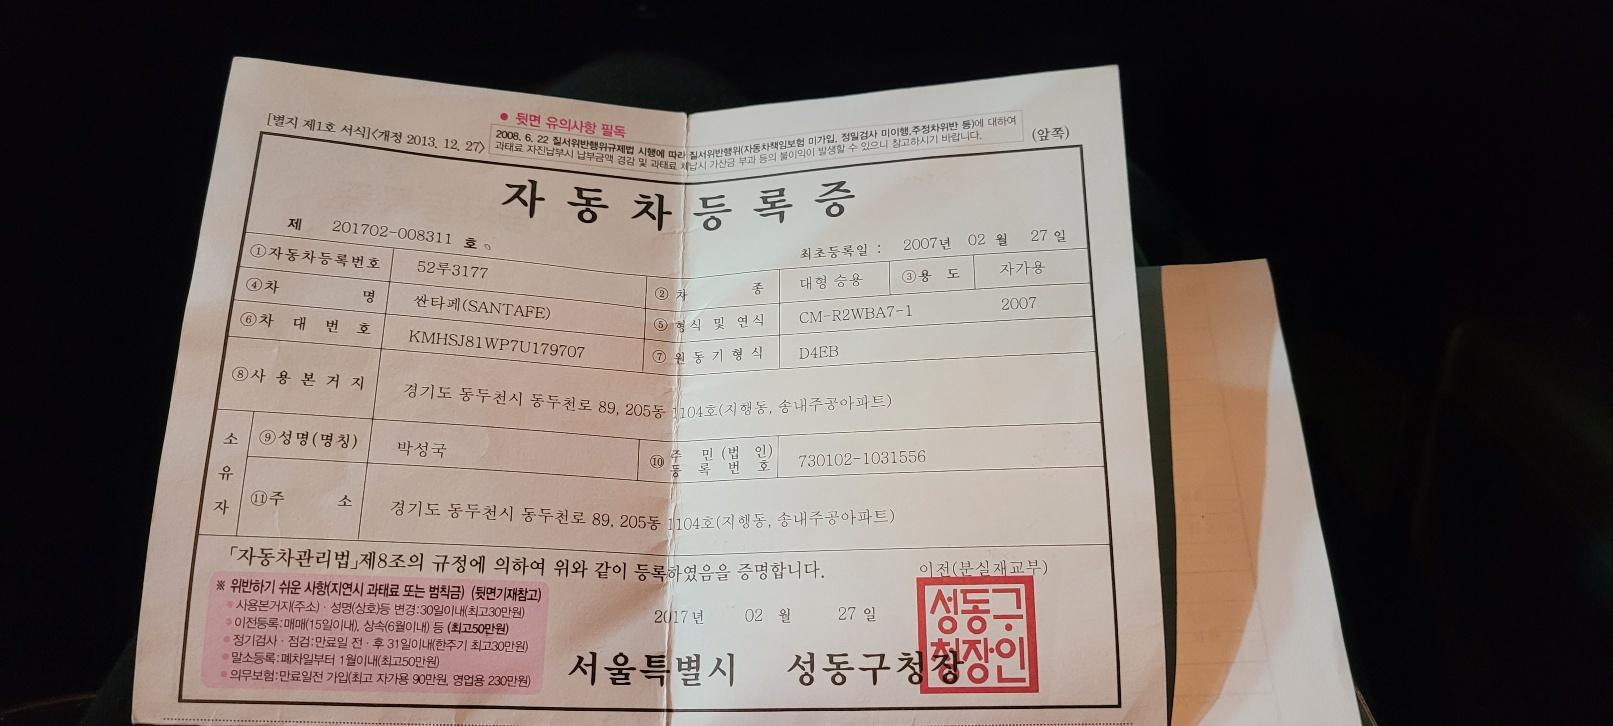 [별지 제1호 서식]<개정 2013. 12. 27>
● 뒷면 유의사항 필독
2008. 6. 22 질서위반행위규제법 시행에 따라 질서위반행위(자동차책임보험 미가입, 정밀검사 미이행,주정차위반 등)에 대하여
과태료 자진납부시 납부금액 경감 및 과태료 체납시 가산금 부과 등의 불이익이 발생할 수 있으니 참고하시기 바랍니다.
(앞쪽)
자동차등록증
제 201702-008311 호
최초등록일 : 2007년 02 월 27 일
①자동차등록번호 52루3177 ② 차 종 대형 승용 ③용 도 자가용
④차 명 싼타페(SANTAFE) ⑤ 형식 및 연식 CM-R2WBA7-1 2007
⑥차 대 번 호 KMHSJ81WP7U179707 ⑦ 원 동 기 형 식 D4EB
⑧사 용 본 거 지 경기도 동두천시 동두천로 89, 205동 1104호(지행동, 송내주공아파트)
소유자 ⑨성명(명칭) 박성국 ⑩ 주 민 (법 인) 등 록 번 호 730102-1031556
⑪주 소 경기도 동두천시 동두천로 89, 205동 1104호(지행동, 송내주공아파트)
「자동차관리법」제8조의 규정에 의하여 위와 같이 등록하였음을 증명합니다.
이전(분실재교부)
※ 위반하기 쉬운 사항(지연시 과태료 또는 범칙금) (뒷면기재참고)
● 사용본거지(주소)·성명(상호)등 변경:30일이내(최고30만원)
● 이전등록:매매(15일이내), 상속(6월이내) 등 (최고50만원)
● 정기검사·점검:만료일 전·후 31일이내(한주기 최고30만원)
● 말소등록:폐차일부터 1월이내(최고50만원)
● 의무보험:만료일전 가입(최고 자가용 90만원, 영업용 230만원)
2017년 02 월 27 일
서울특별시 성동구청장
성동구
청장인